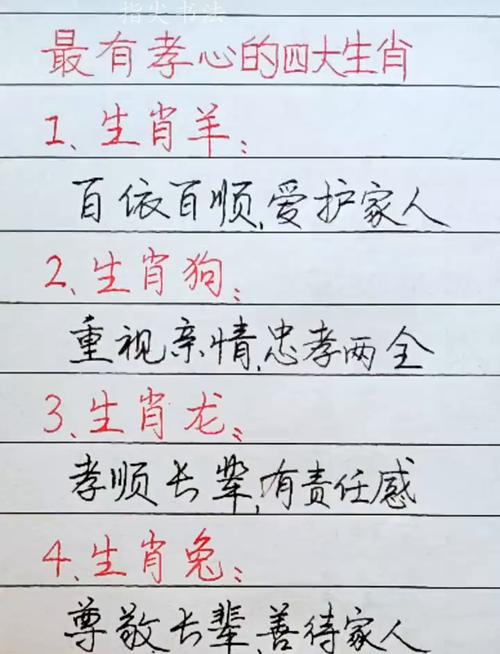 指尖书法
最有孝心的四大生肖
1、生肖羊：
百依百顺,爱护家人
2、生肖狗：
重视亲情,忠孝两全
3、生肖龙：
孝顺长辈,有责任感
4、生肖兔：
尊敬长辈,善待家人